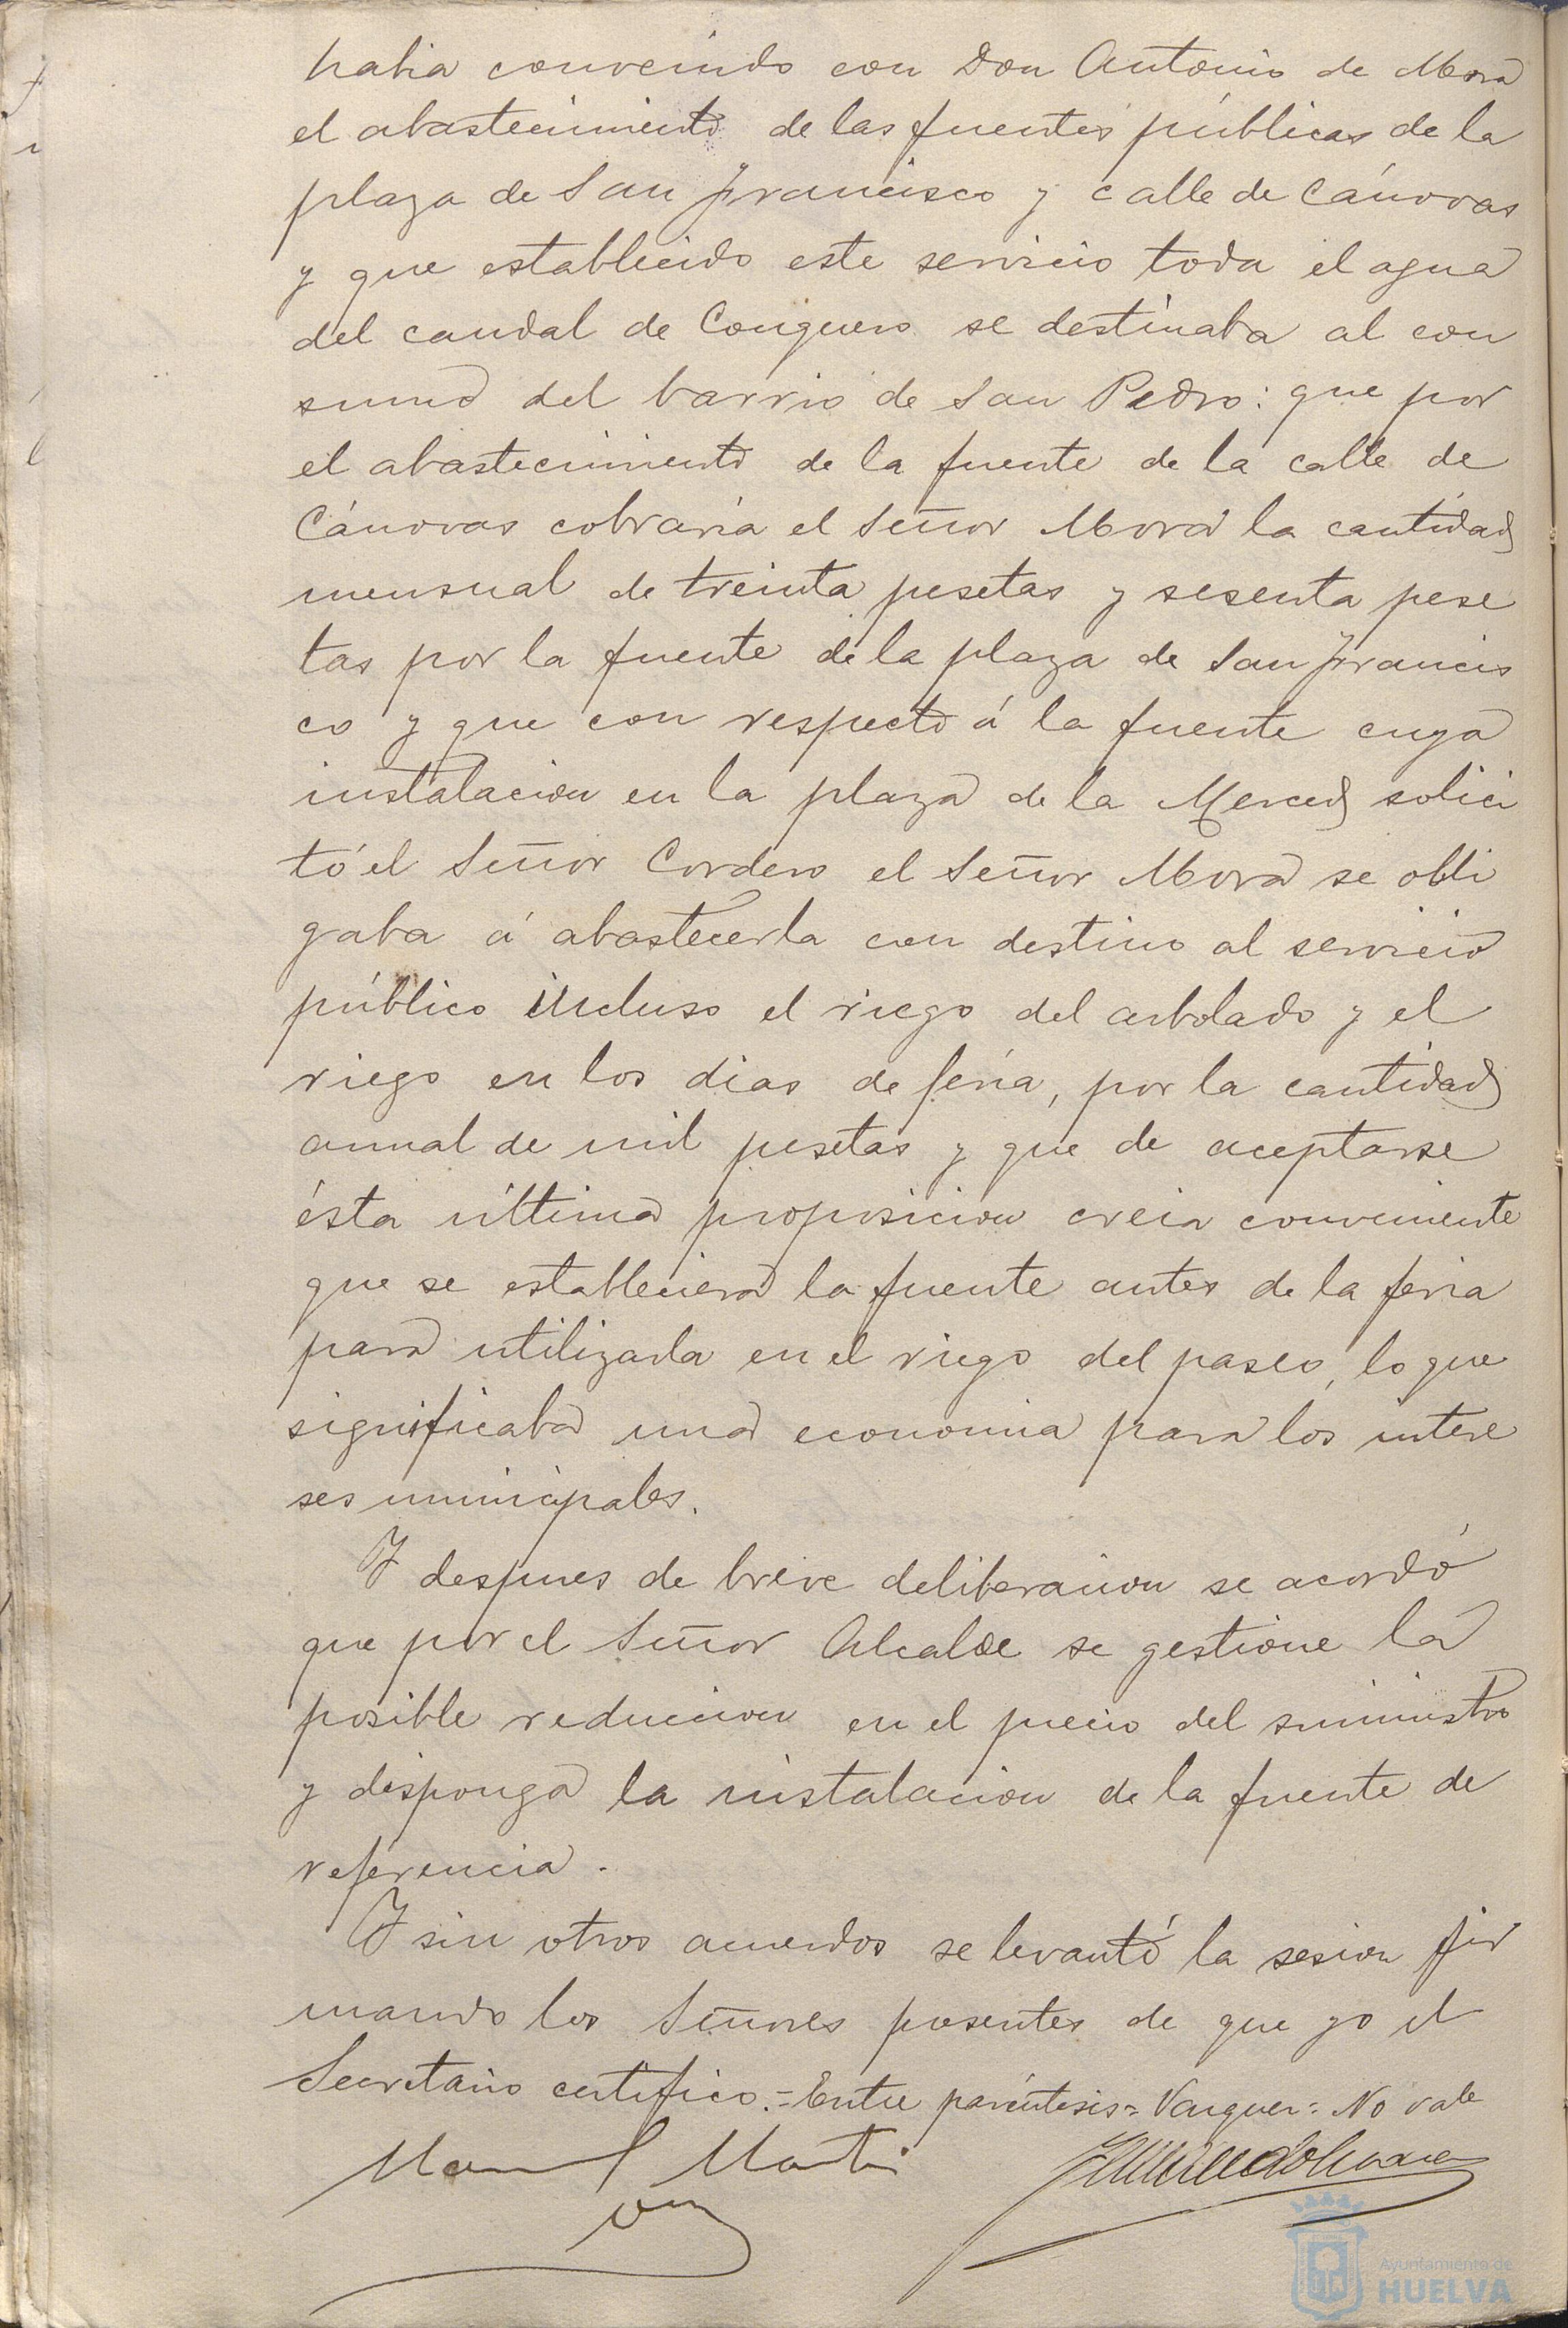 habia convenido con Don Antonio de Mora
el abastecimiento de las fuentes públicas de la
plaza de San Francisco y calle de Cánovas
y que establecido este servicio toda el agua
del caudal de Conquero se destinaba al con
sumo del barrio de San Pedro: que por
el abastecimiento de la fuente de la calle de
Cánovas cobraría el Señor Mora la cantidad
mensual de treinta pesetas y sesenta pese
tas por la fuente de la plaza de San Francis
co y que con respecto á la fuente cuya
instalacion en la plaza de la Merced solici
tó el Señor Cordero el Señor Mora se obli
gaba á abastecerla con destino al servicio
público incluso el riego del arbolado y el
riego en los dias de féria, por la cantidad
anual de mil pesetas y que de aceptarse
ésta última proposicion creia conveniente
que se estableciera la fuente antes de la feria
para utilizarla en el riego del paseo, lo que
significaba una economia para los intere
ses municipales.
Y despues de breve deliberacion se acordó
que por el Señor Alcalde se gestione la
posible reduccion en el precio del suministro
y disponga la instalacion de la fuente de
referencia.
Y sin otros acuerdos se levantó la sesion fir
mando los Señores presentes de que yo el
Secretario certifico.=Entre paréntesis= Vazquez= No vale
Manuel Martin
Ayuntamiento de
HUELVA